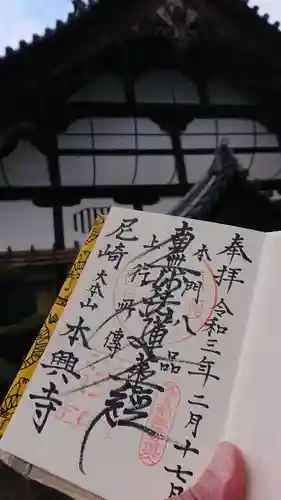 奉拝 令和三年二月十七日
本門八品
南無妙法蓮華經
上行所傳
尼崎
大本山 本興寺